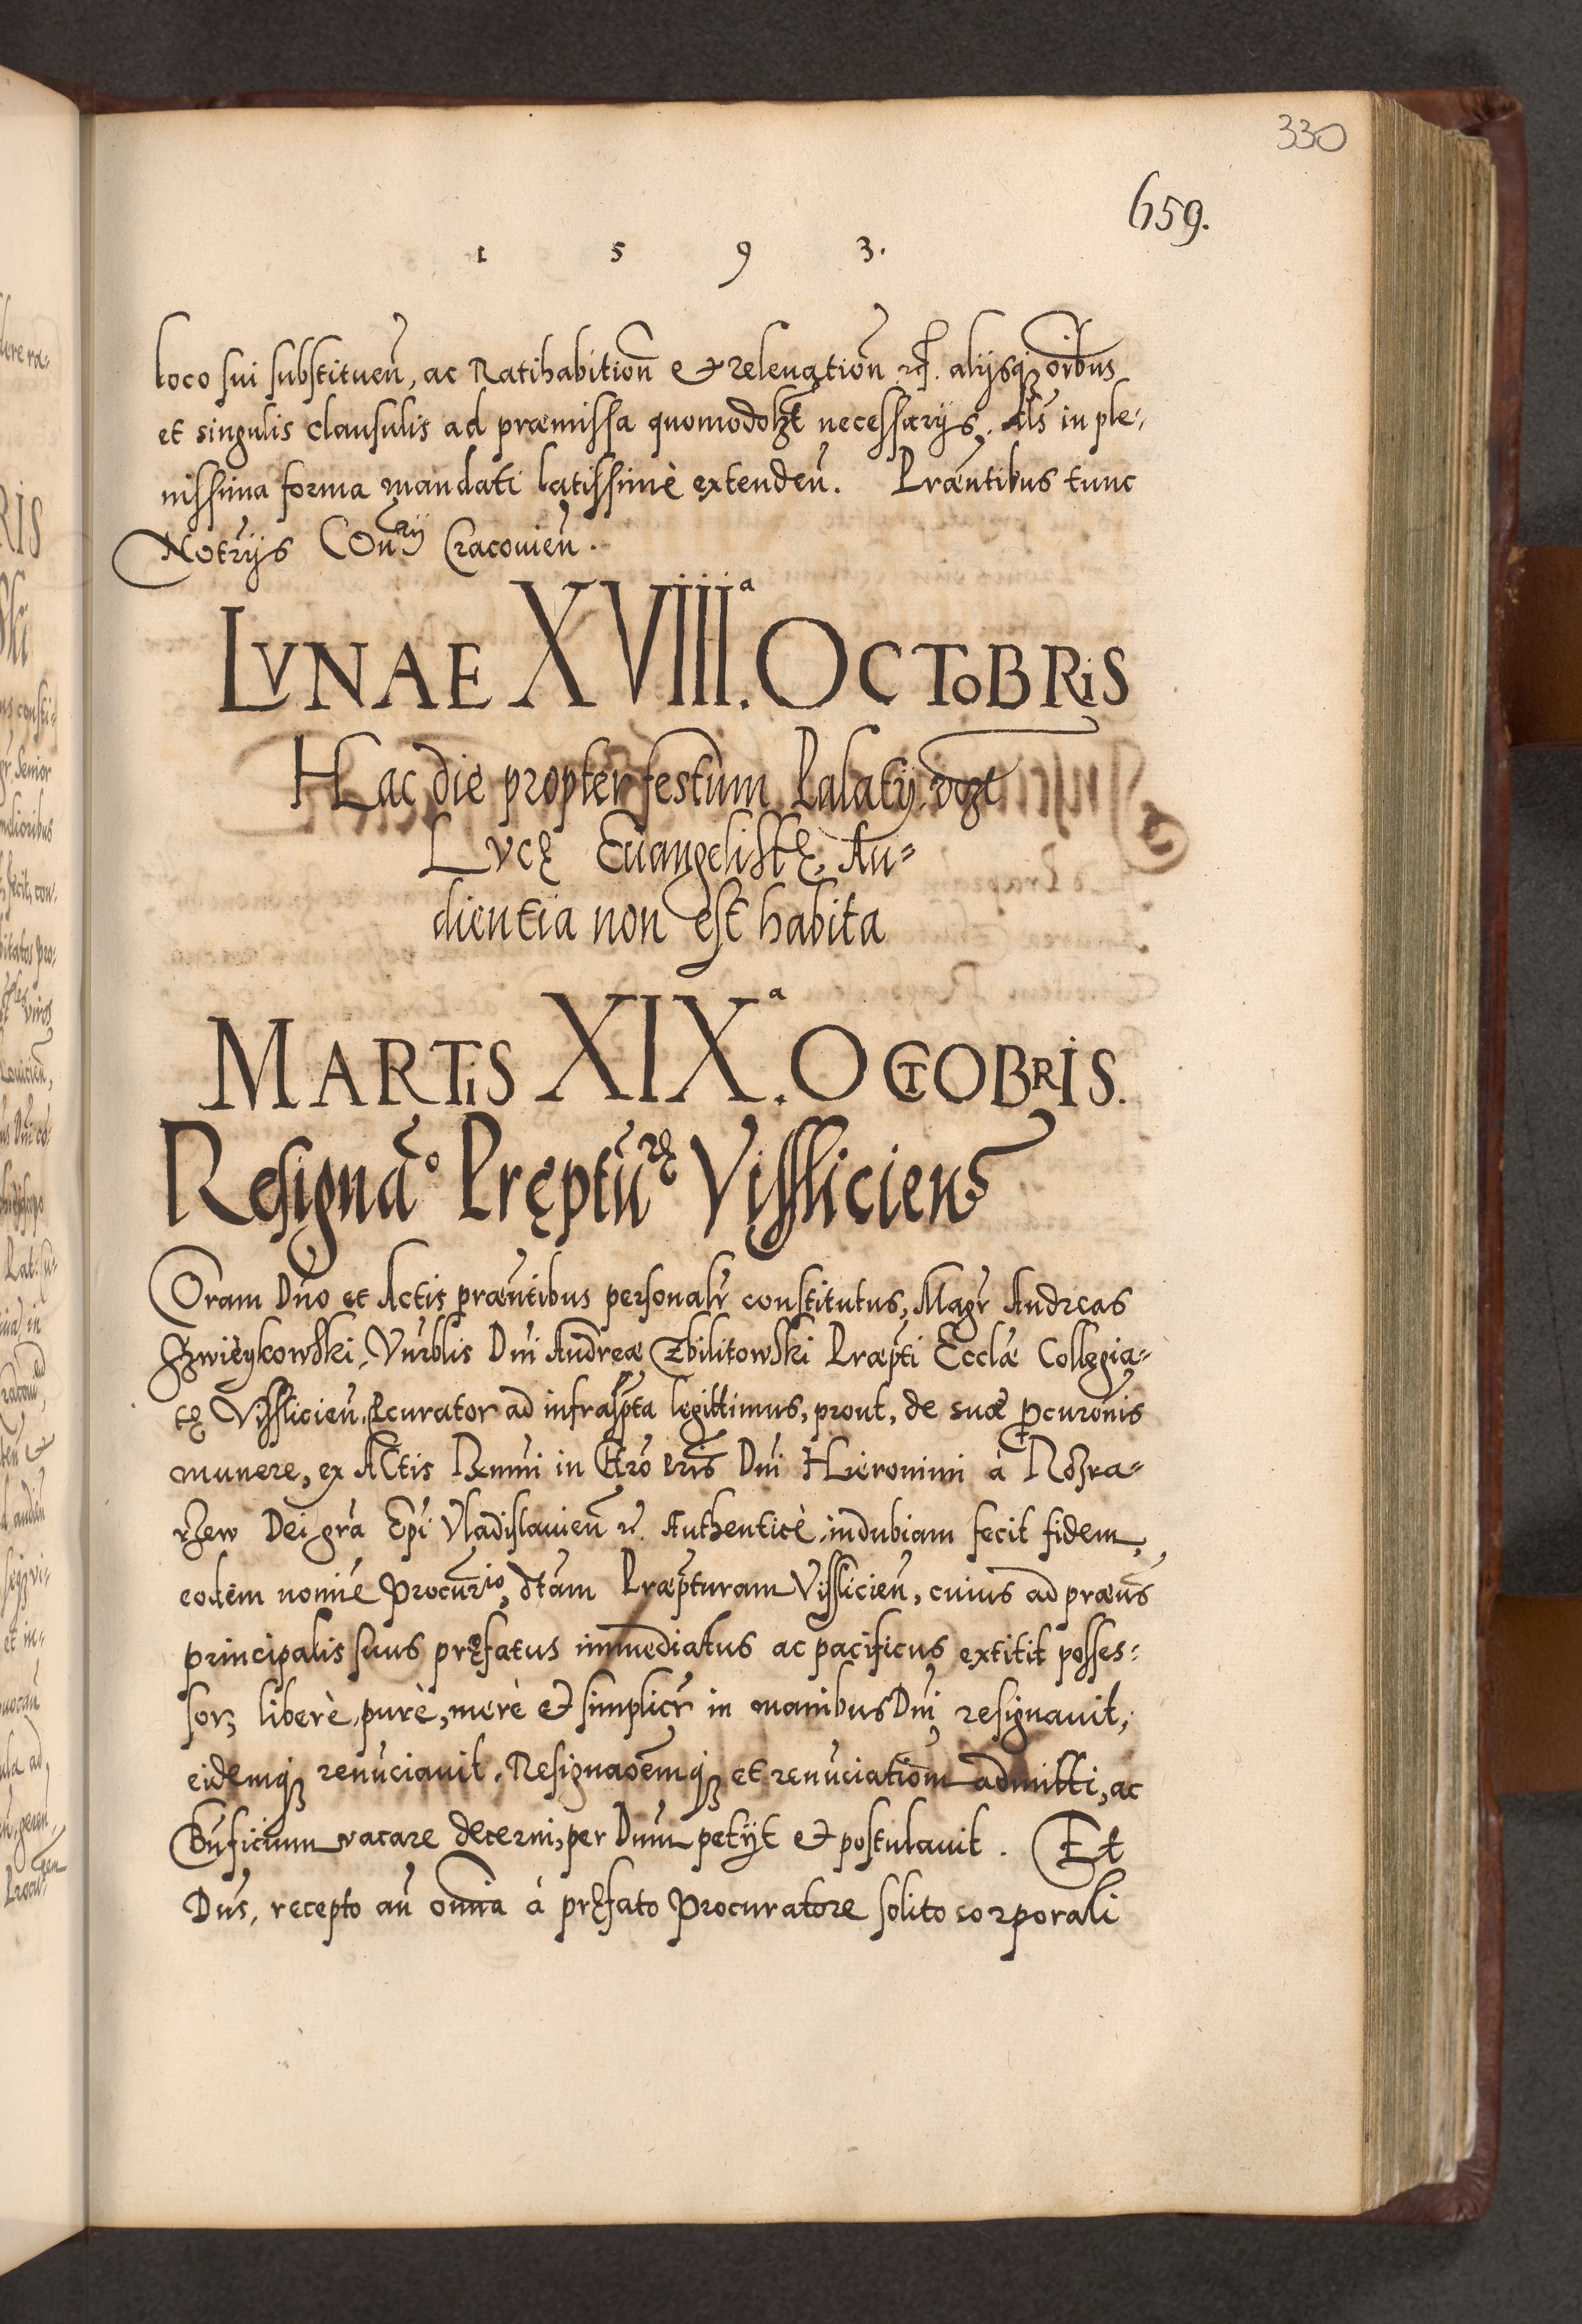 330
659.
1 5 9 3.
loco sui substituen̄, ac Ratihabition̄ et releuation̄ alijsq₃ oībus
et singulis clausulis ad præmissa quomodol₃t necessarijs, Als in ple-
nissima forma mandati latissimè extenden̄. Præn̄tibus tunc
Notr̄ijs Con̄rij Cracouien̄.
LVNAE XVIIII.ª OCTOBRIS
Hac die propter festum Palatij
Lvcę Euangelistę, Au-
dientia non est habita
MARTIS XIXª. OCTOBRIS.
Resignāo Pręptūrę Vissliciens
Coram Dn̄o et Actis præn̄tibus personalr̄ constitutus, Magr̄ Andreas
Vn̄rblis Dn̄i Andreæ Zbilitowski Præpt̄i Eccl̄æ Collegia-
tę Visslicien̄, Pcurator ad infrasp̄ta legittimus, prout, de suæ ꝓcurōnis
munere, ex Actis Rn̄mi in Chr̄o Dn̄i Hieronimi à Rozra-
rzew Dei gr̄a Ep̄i Vladislauien̄ Authenticè indubiam fecit fidem,
eodem nomie Procur̄rio, dtam Præpturam Visslicien̄, cuius ad præn̄s
principalis suus pręfatus immediatus ac pacificus extitit posses-
sor, liberè, purè, merè et simplicr̄ in manibus Dn̄i resignauit,
eidemq₃ renūciauit. Resignaōemq₃ et renūciation̄m admitti, ac
Bn̄ficium vacare decerni, per Dnm̄ petijt et postulauit. Et
Dn̄s, recepto an̄ omnia à pręfato Procuratore solito corporali